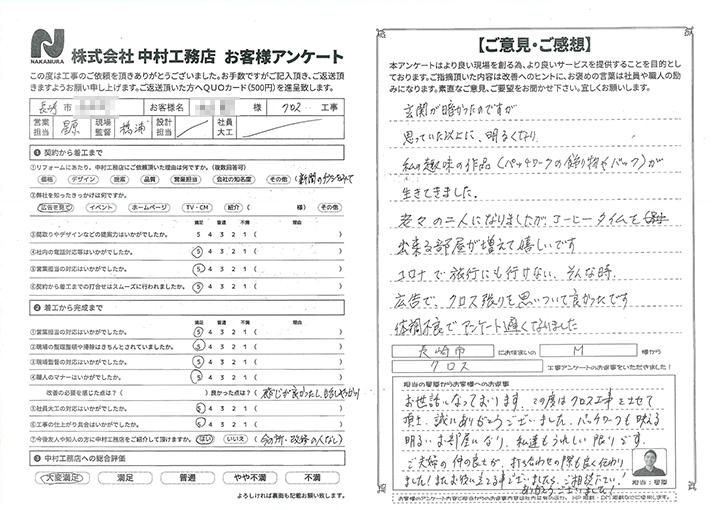 NAKAMURA
株式会社 中村工務店 お客様アンケート
この度は工事のご依頼を頂きありがとうございました。お手数ですがご記入頂き、ご返送頂
きますようお願い申し上げます。ご返送いただいた方へQUOカード(500円)を進呈致します。
長崎 市 お客様名 様 クロス 工事
営業担当 現場監督 設計担当 社員大工
❶ 契約から着工まで
①リフォームにあたり、中村工務店にご依頼頂いた理由は何ですか。(複数回答可)
価格 デザイン 提案 品質 営業担当 会社の知名度 その他
②弊社を知ったきっかけは何ですか。
広告を見て イベント ホームページ TV・CM 紹介( 様) その他
満足 普通 不満 理由
③間取りやデザインなどの提案力はいかがでしたか。 5 4 3 2 1 ( )
④社内の電話対応等はいかがでしたか。 5 4 3 2 1 ( )
⑤営業担当の対応はいかがでしたか。 5 4 3 2 1 ( )
⑥契約から着工までの打合せはスムーズに行われましたか。 5 4 3 2 1 ( )
❷ 着工から完成まで
満足 普通 不満 理由
①営業担当の対応はいかがでしたか。 5 4 3 2 1 ( )
②現場の整理整頓や掃除はきちんとされていましたか。 5 4 3 2 1 ( )
③現場監督の対応はいかがでしたか。 5 4 3 2 1 ( )
④職人のマナーはいかがでしたか。 5 4 3 2 1 ( )
改善の必要を感じた点は?( ) 良かった点は?(感じが良かったし
⑤社員大工の対応はいかがでしたか。 5 4 3 2 1 ( )
⑥工事の仕上がり具合はいかがでしたか。 5 4 3 2 1 ( )
⑦今後友人や知人の方に中村工務店をご紹介して頂けますか。 はい いいえ
❸ 中村工務店への総合評価
大変満足 満足 普通 やや不満 不満
よろしければ裏面も記載お願い致します。
【ご意見・ご感想】
本アンケートはより良い現場を創る為、より良いサービスを提供することを目的と
しております。ご指摘頂いた内容は改善へのヒントに、お褒めの言葉は社員や職人の励
みになります。素直なご意見、ご要望をお聞かせ下さい。宜しくお願いします。
玄関が暗かったのですが
思っていた以上に、明るくなり
私の趣味の作品(パッチワークの飾り物やバック)が
生きてきました。
老々の二人になりましたが、コーヒータイムを
出来る部屋が増えて嬉しいです
コロナで旅行にも行けない、そんな時、
広告で、クロス張りを思いついて良かったです
体調不良でアンケート遅くなりました
長崎市 にお住まいの M 様から
クロス 工事アンケートのお返事をいただきました!
担当の星原からお客様へのお返事
お世話になっております。この度はクロス工事をさせて
頂き、誠にありがとうございました。パッチワークも映える
明るいお部屋になり、私達もうれしい限りです。
ご夫婦の仲の良さが、打ち合わせの際も良く伝わり
ました!またお役に立てる事ございましたら、ご相談下さい!
ありがとうございました!
担当:星原